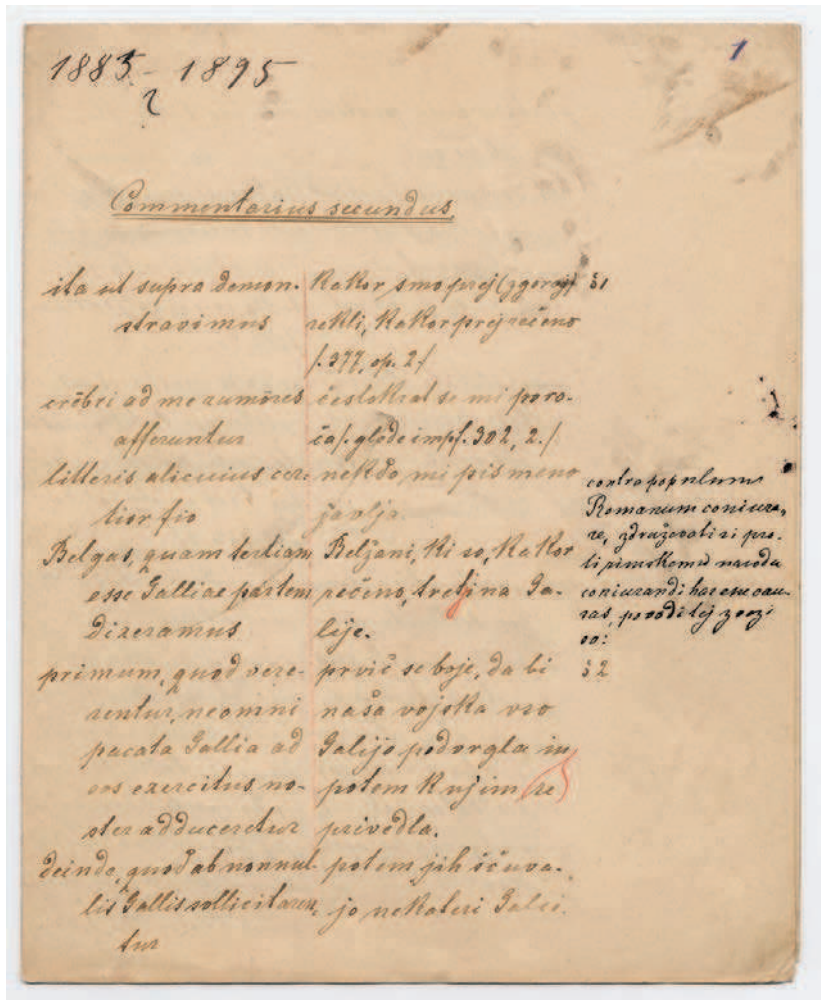 1
1885 - 1895
?
Commentarius secundus.
ita ut supra demon-
stravimus
crēbri ad me rumōres
afferuntur
litteris alicuius cer-
tior fio
Belgas, quam tertiam
esse Galliae partem
dixeramus
primum, quod vere-
rentur, ne omni
pacata Gallia ad
eos exercitus no-
ster adduceretur
deinde, quod ab nonnul-
lis Gallis sollicitaren-
tur
Kakor smo prej (zgoraj)
rekli, Kakor prej rečeno
/. 377, op. 2./
čestokrat se mi poro-
ča /. glede impf. 302, 2./
nekdo mi pismeno
javlja
Belžani, ki so, Kakor
rečeno, tretjina Ga-
lije.
prvič se boje, da bi
naša vojska vso
Galijo podvrgla in
potem k njim se
privedla.
potem jih ščuva-
jo nekateri Galci.
§1
contra populum
Romanum coniura-
re, združevati si pro-
ti rimskemu narodu
coniurandi has esse cau-
sas, povodi tej zvezi
so:
§ 2